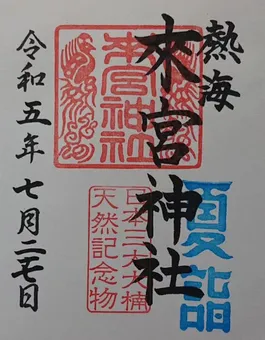 熱海
來宮神社
夏詣
令和五年七月二七日
來宮神社
日本三大大楠
天然記念物